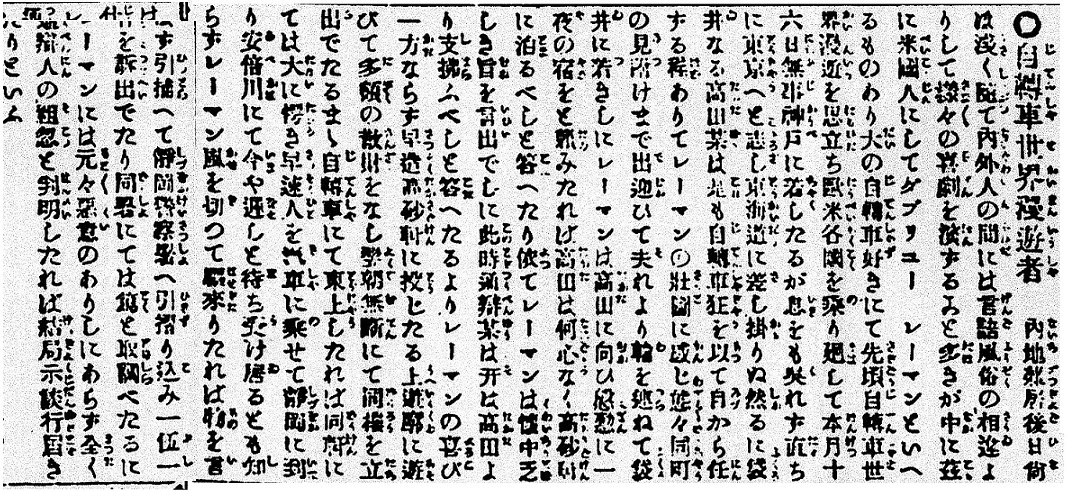 ○自轉車世界漫遊者　内地雜居後日尚
は淺く隨て内外人の間には言語風俗の相違よ
りして樣々の喜劇を演ずること多きが中に茲
に米國人にしてダブリユー　レーマンといへ
るものあり大の自轉車好きにて先頃自轉車世
界漫遊を思立ち歐米各國を乘り廻して本月十
六日無事神戸に着したるが息をも吳れず直ち
に東京へと志し東海道に差し掛りぬ然るに袋
井なる高田某は是も自轉車狂を以て自から任
ずる程ありてレーマンの壯圖に感じ態々同町
の見附けまで出迎ひて夫れより輪を連ねて袋
井に着きしにレーマンは高田に向ひ慇懃に一
夜の宿をと頼みたれば高田は何心なく高砂村
に泊るべしと答へたり依てレーマンは懷中乏
しき旨を言出でしに此時通辯某は开は高田よ
り支拂ふべしと答へたるよりレーマンの喜び
一方ならず早速高砂村に投じたる上遊廓に遊
びて多額の散財をなし翌朝無斷にて同樓を立
出でたるまゝ自轉車にて東上したれば同樓に
ては大に愕き早速人を汽車に乘せて靜岡に到
り安倍川にて今や遲しと待ち受け居るとも知
らずレーマン風を切つて馳來りたれば物を言
はず引捕へて靜岡警察署へ引摺り込み一伍一
什を訴出でたり同署にては篤と取調べたるに
レーマンには元々惡意のありしにあらず全く
通辯人の粗忽と判明したれば結局示談行屆き
たりといふ